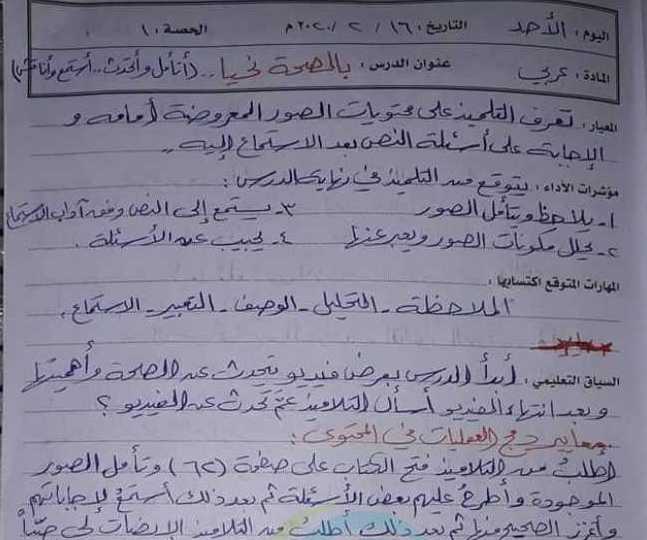 اليوم : الأحد التاريخ : ١٦ / ٢ / ٢٠٢٠ م الحصة : ١
المادة : عربي عنوان الدرس : بالصحة نحيا .. (أتأمل وأتحدث .. أستمع وأناقش)
المعيار : تعرف التلميذ على محتويات الصور المعروضة أمامه و
الإجابة على أسئلة النص بعد الاستماع إليه ..
مؤشرات الأداء : يتوقع من التلميذ في نهاية الدرس :
١- يلاحظ ويتأمل الصور ٣- يستمع إلى النص وفق آداب الاستماع
٢- يحلل مكونات الصور ويعبر عنها ٤- يجيب عن الأسئلة .
المهارات المتوقع اكتسابها :
الملاحظة - التحليل - الوصف - التعبير - الاستماع .
السياق التعليمي : أبدأ الدرس بعرض فيديو يتحدث عن الصحة وأهميتها
و بعد انتهاء الفيديو أسأل التلاميذ عمّ تحدث عنه الفيديو ؟
معايير دمج العمليات في المحتوى :
اطلب من التلاميذ فتح الكتاب على صفحة (٦٢) وتأمل الصور
الموجودة وأطرح عليهم بعض الأسئلة ثم بعد ذلك أستمع لإجاباتهم
وأعزز الصحيح منها ثم بعد ذلك أطلب من التلاميذ الإنصات لي